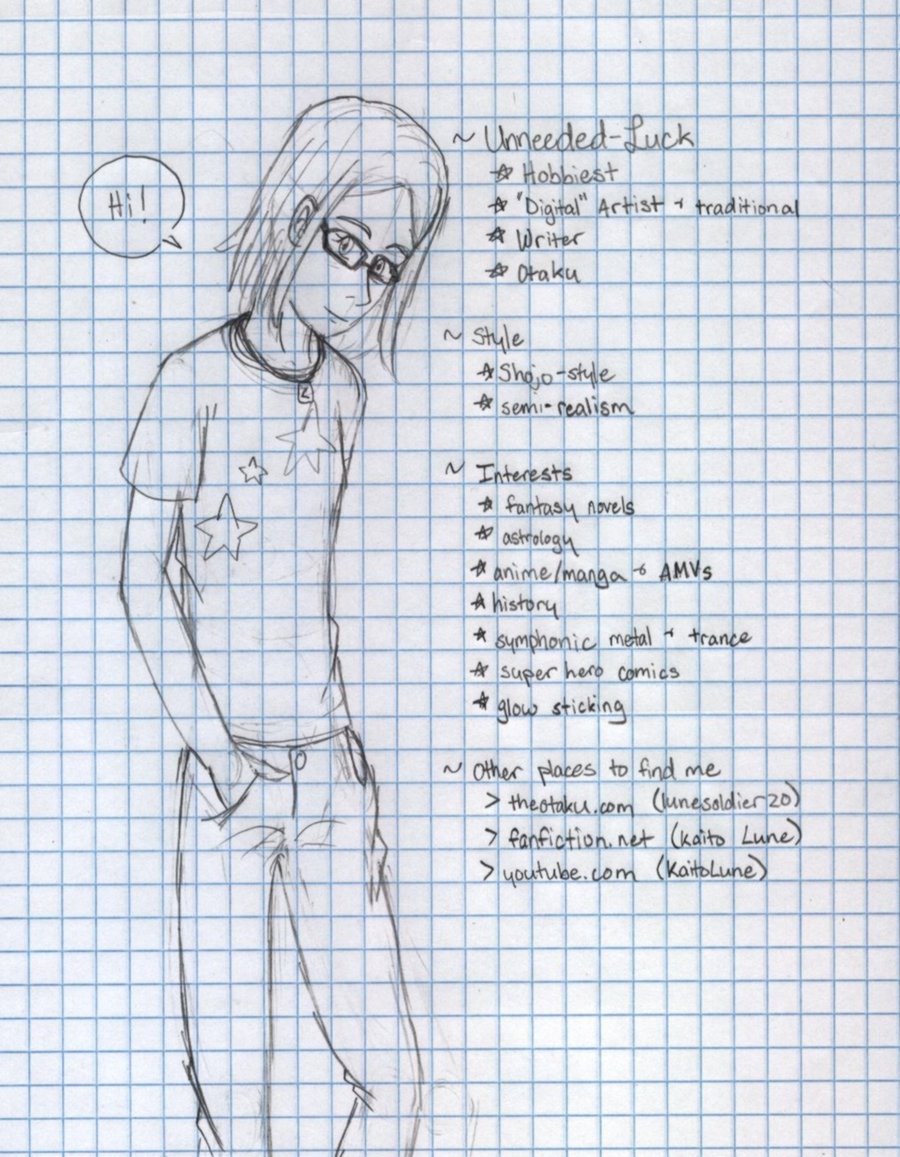 Hi!
~ Unneeded-Luck
☆ Hobbiest
☆ "Digital" Artist + traditional
☆ Writer
☆ Otaku
~ Style
☆ Shojo-style
☆ semi-realism
~ Interests
☆ fantasy novels
☆ astrology
☆ anime/manga + AMVs
☆ history
☆ symphonic metal + trance
☆ super hero comics
☆ glow sticking
~ Other places to find me
> theotaku.com (lunesoldier20)
> fanfiction.net (Kaito Lune)
> youtube.com (KaitoLune)